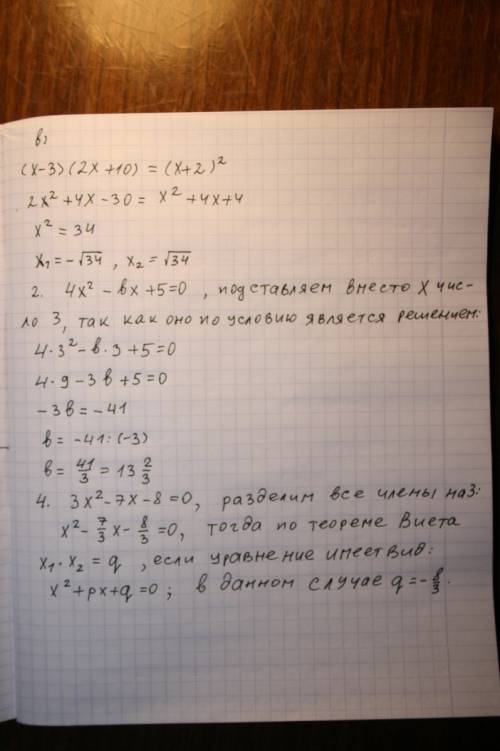 в)
(x-3)(2x+10) = (x+2)²
2x²+4x-30 = x²+4x+4
x² = 34
x₁=-√34, x₂=√34
2. 4x²-bx+5=0, подставляем вместо x чис-
ло 3, так как оно по условию является решением:
4·3²-b·3+5=0
4·9-3b+5=0
-3b=-41
b= -41:(-3)
b= 41/3 = 13 2/3
4. 3x²-7x-8=0, разделим все члены на 3:
x²- 7/3 x- 8/3 =0, тогда по теореме Виета
x₁·x₂=q, если уравнение имеет вид:
x²+px+q=0; в данном случае q=- 8/3.